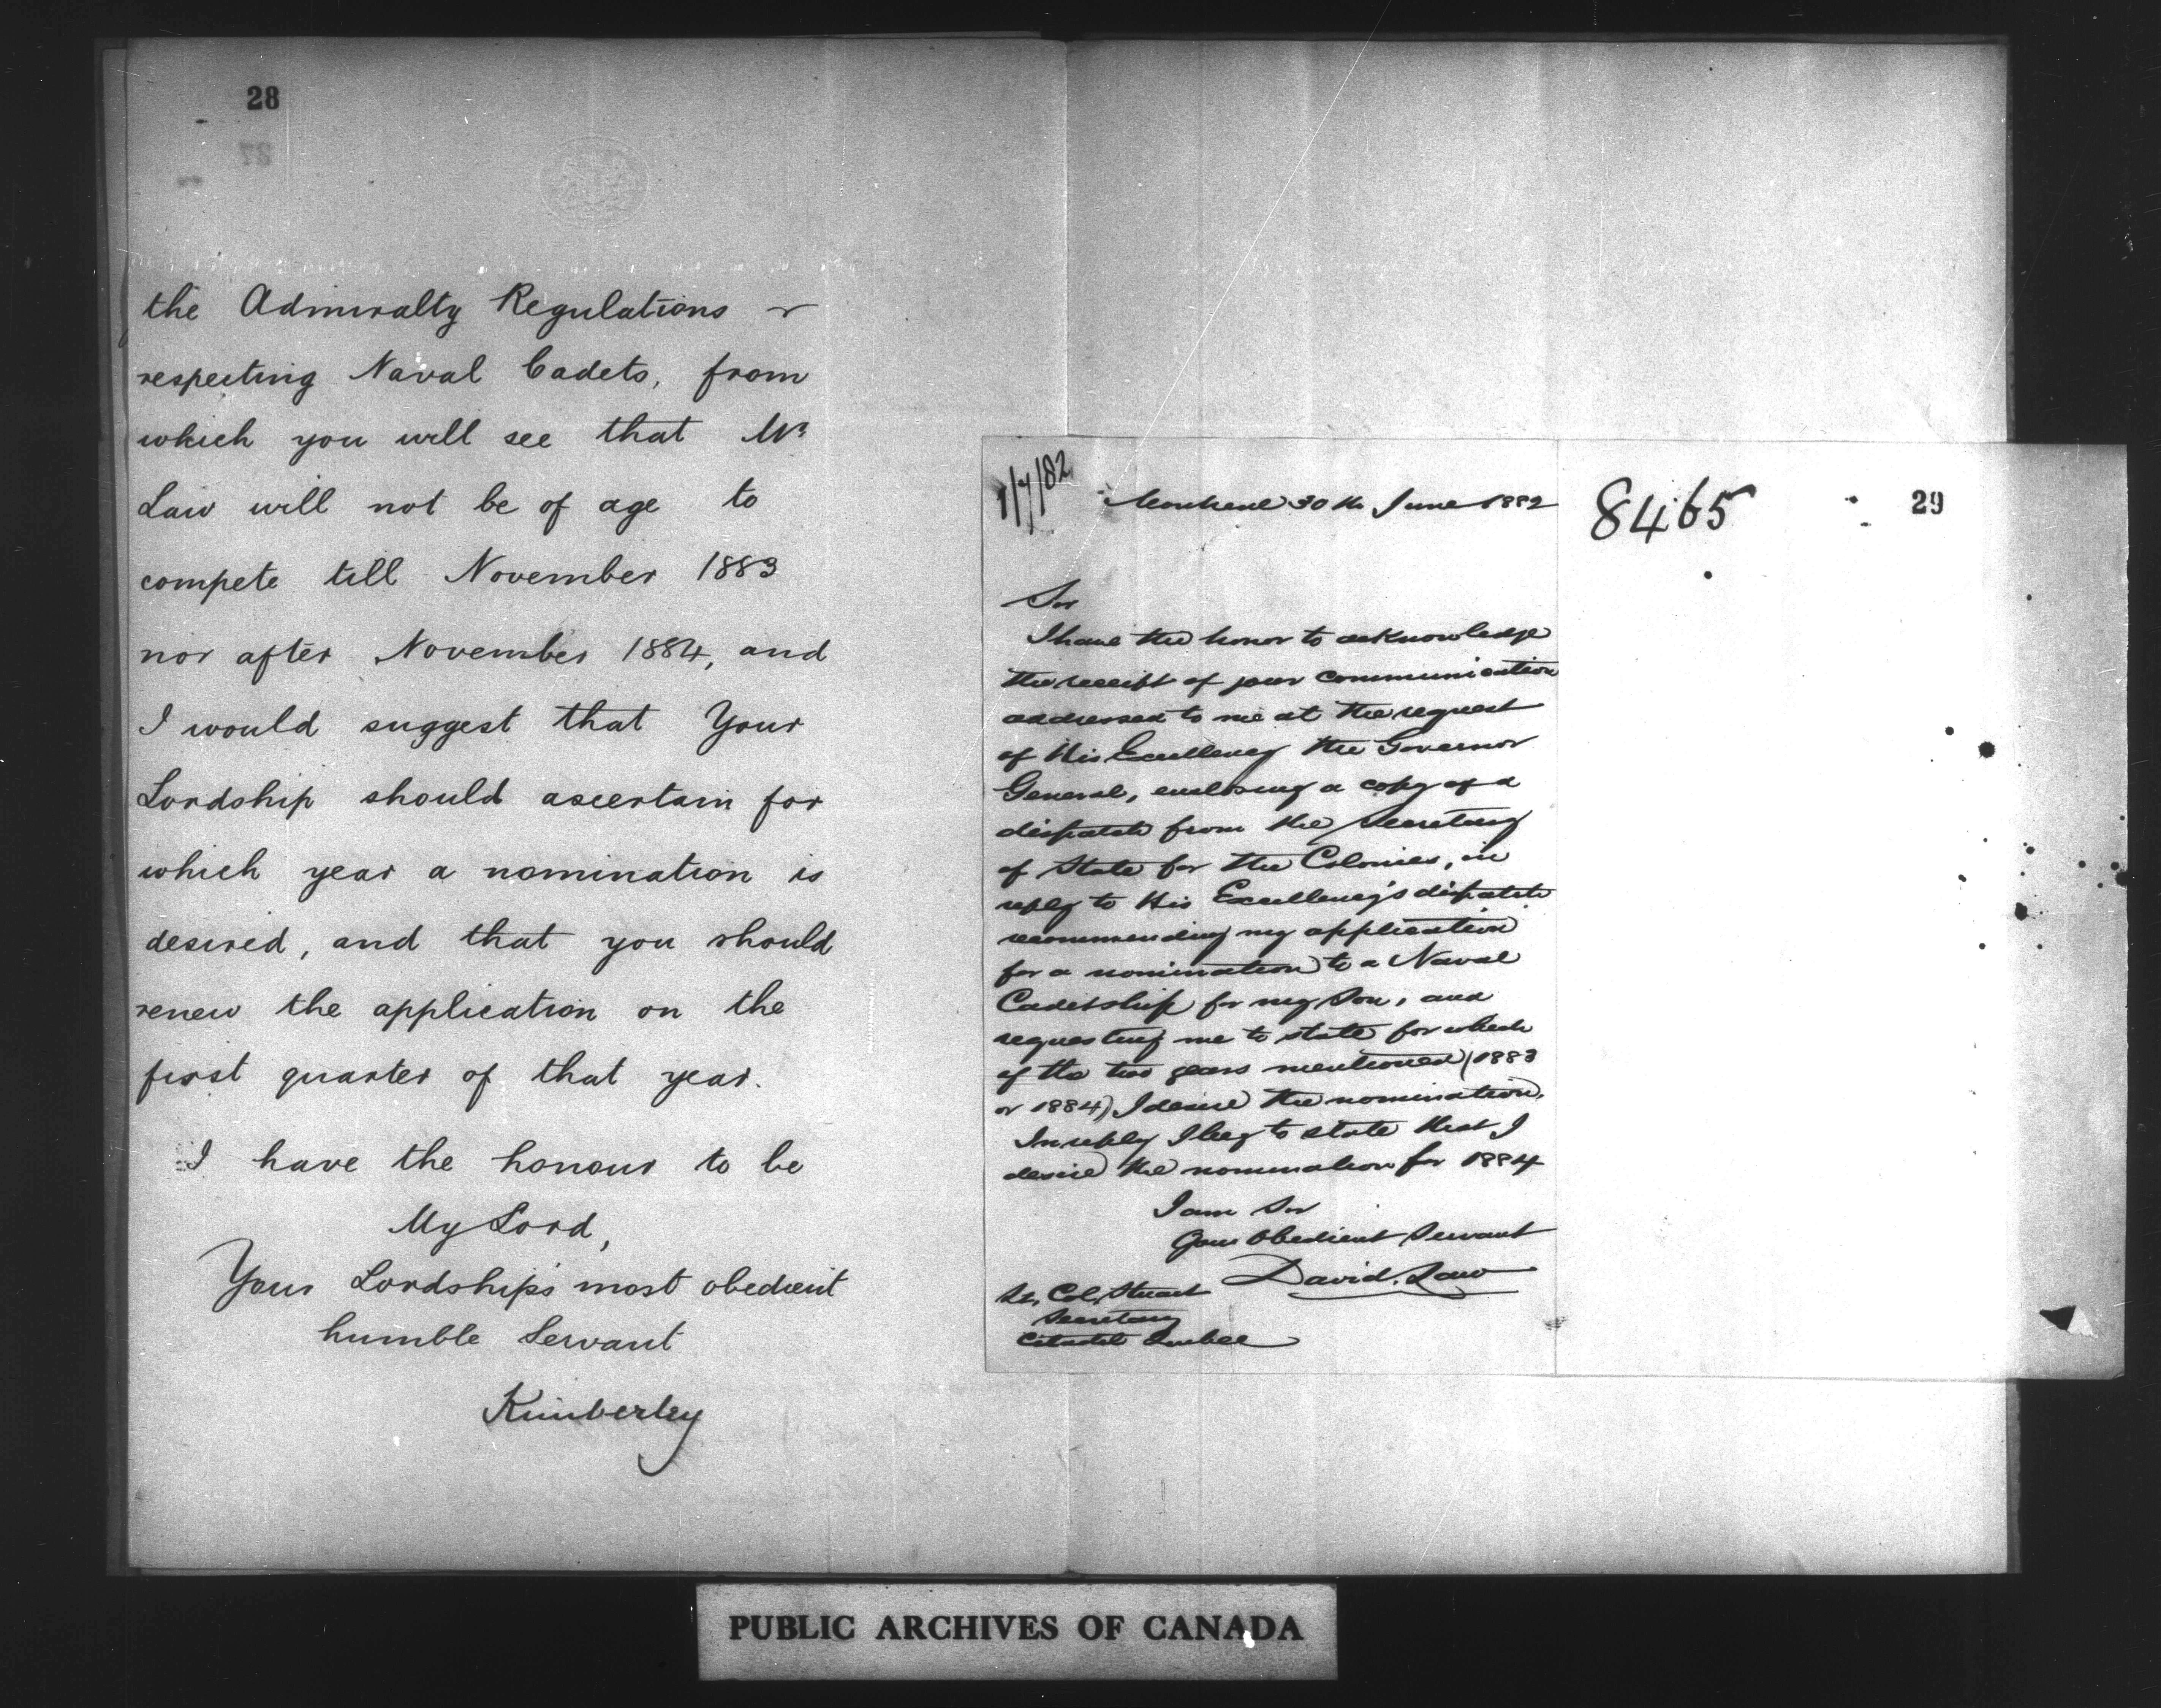 28
the Admiralty Regulations
respecting Naval Cadets, from
which you will see that Mr
Law will not be of age to
compete till November 1883
nor after November 1884, and
I would suggest that Your
Lordship should ascertain for
which year a nomination is
desired, and that you should
renew the application on the
first quarter of that year.
I have the honour to be
My Lord,
Your Lordship's most obedient
humble Servant
Kimberley
7/7/82
Montreal 30th June 1882
8465
29
Sir
I have the honor to acknowledge
the receipt of your communication
addressed to me at the request
of His Excellency the Governor
General, enclosing a copy of a
dispatch from the Secretary
of State for the Colonies, in
reply to His Excellency's dispatch
recommending my application
for a nomination to a Naval
Cadetship for my Son, and
requesting me to state for which
of the two years mentioned (1883
or 1884) I desire the nomination.
In reply I beg to state that I
desire the nomination for 1884
I am Sir
Your Obedient Servant
David Law
Lt. Col. Stuart
Secretary
Citadel Quebec
PUBLIC ARCHIVES OF CANADA